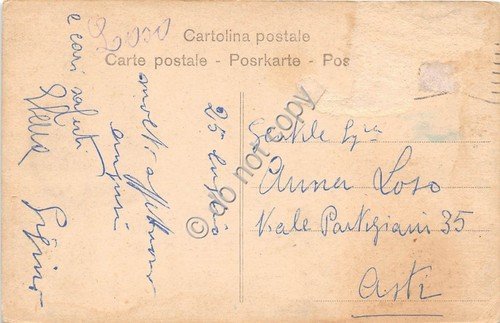 2000
Cartolina postale
Carte postale - Posrkarte - Pos
25 luglio
molti affettuosi
auguri
e cari saluti
Gentile Sig.ra
Anna Loso
Viale Partigiani 35
Asti
© Do not copy